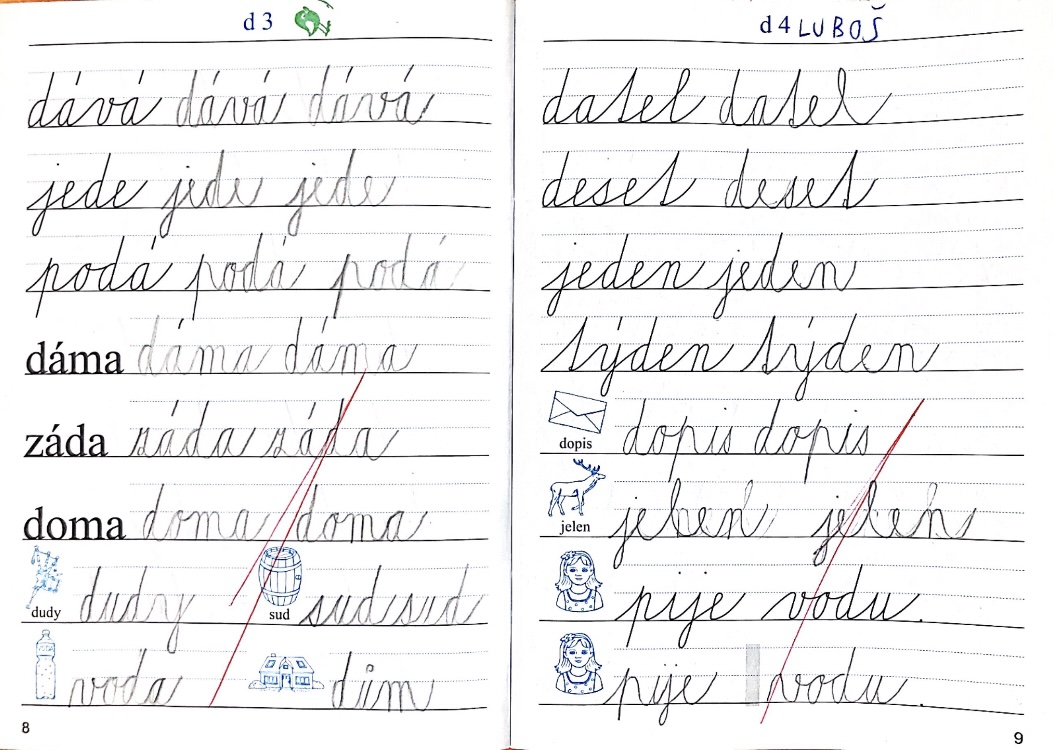 d 3
dává dává dává
jede jede jede
podá podá podá
dáma dáma dáma
záda záda záda
doma doma doma
dudy dudy sud sud sud
voda dům
8
d 4 LUBOŠ
datel datel
deset deset
jeden jeden
týden týden
dopis dopis dopis
jelen jelen jelen
pije vodu.
pije vodu.
9